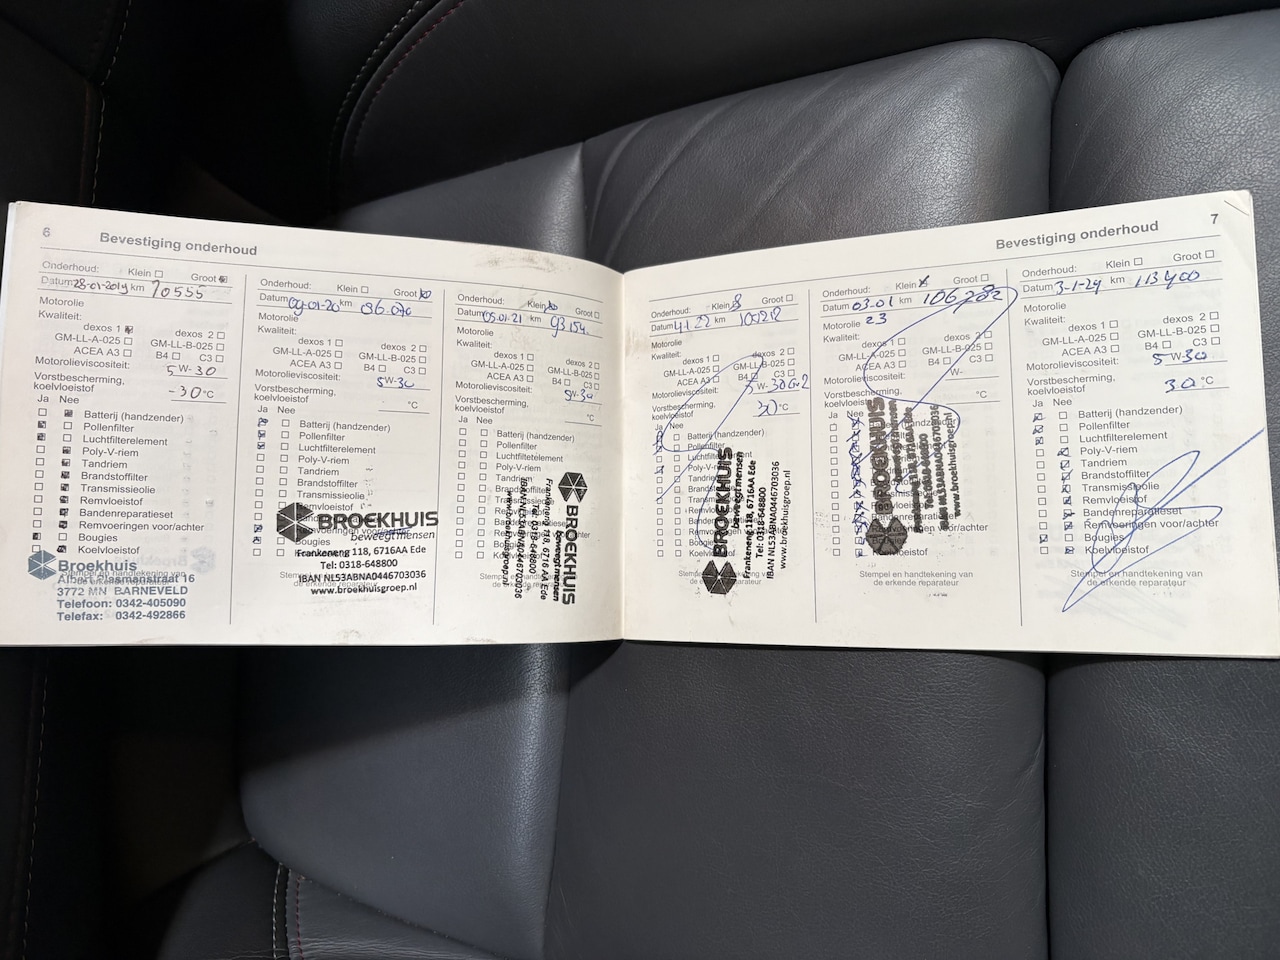 6
Bevestiging onderhoud
Onderhoud: Klein Groot
Datum 28-01-2019 km 70555
Motorolie
Kwaliteit:
dexos 1 dexos 2
GM-LL-A-025 GM-LL-B-025
ACEA A3 B4 C3
Motorolieviscositeit:
5 W-30
Vorstbescherming,
koelvloeistof -30 °C
Ja Nee
Batterij (handzender)
Pollenfilter
Luchtfilterelement
Poly-V-riem
Tandriem
Brandstoffilter
Transmissieolie
Remvloeistof
Bandenreparatieset
Remvoeringen voor/achter
Bougies
Koelvloeistof
Stempel en handtekening van
de erkende reparateur
Broekhuis
Albert Plesmanstraat 16
3772 MN BARNEVELD
Telefoon: 0342-405090
Telefax: 0342-492866
Onderhoud: Klein Groot
Datum 09-01-20 km 86.070
Motorolie
Kwaliteit:
dexos 1 dexos 2
GM-LL-A-025 GM-LL-B-025
ACEA A3 B4 C3
Motorolieviscositeit:
5W-30
Vorstbescherming,
koelvloeistof °C
Ja Nee
Batterij (handzender)
Pollenfilter
Luchtfilterelement
Poly-V-riem
Tandriem
Brandstoffilter
Transmissieolie
Remvloeistof
BROEKHUIS
beweegt mensen
Frankeneng 118, 6716AA Ede
Tel: 0318-648800
IBAN NL53ABNA0446703036
www.broekhuisgroep.nl
Onderhoud: Klein Groot
Datum 05-01-21 km 93154
Motorolie
Kwaliteit:
dexos 1 dexos 2
GM-LL-A-025 GM-LL-B-025
ACEA A3 B4 C3
Motorolieviscositeit:
5W-30
Vorstbescherming,
koelvloeistof °C
Ja Nee
Batterij (handzender)
Pollenfilter
Luchtfilterelement
Poly-V-riem
Tandriem
Koelvloeistof
BROEKHUIS
beweegt mensen
Frankeneng 118, 6716 AA Ede
Tel: 0318-648800
IBAN NL53ABNA0446703036
www.broekhuisgroep.nl
7
Bevestiging onderhoud
Onderhoud: Klein Groot
Datum 4.1.22 km
Motorolie
Kwaliteit:
dexos 1 dexos 2
GM-LL-A-025 GM-LL-B-025
ACEA A3 B4 C3
Motorolieviscositeit:
5 W-30
Vorstbescherming,
koelvloeistof 30 °C
Ja Nee
Batterij (handzender)
Pollenfilter
Luchtfilterelement
Poly-V-riem
BROEKHUIS
beweegt mensen
Frankeneng 118, 6716AA Ede
Tel: 0318-648800
IBAN NL53ABNA0446703036
www.broekhuisgroep.nl
Stempel en handtekening van
de erkende reparateur
Onderhoud: Klein Groot
Datum 03-01 km 106282
Motorolie 23
Kwaliteit:
dexos 1 dexos 2
GM-LL-A-025 GM-LL-B-025
ACEA A3 B4 C3
Motorolieviscositeit:
W-
Vorstbescherming,
koelvloeistof
Ja Nee
BROEKHUIS
www.broekhuisgroep.nl
Koelvloeistof
Stempel en handtekening van
de erkende reparateur
Onderhoud: Klein Groot
Datum 3-1-24 km 113400
Motorolie
Kwaliteit:
dexos 1 dexos 2
GM-LL-A-025 GM-LL-B-025
ACEA A3 B4 C3
Motorolieviscositeit:
5 W-30
Vorstbescherming,
koelvloeistof 30 °C
Ja Nee
Batterij (handzender)
Pollenfilter
Luchtfilterelement
Poly-V-riem
Tandriem
Brandstoffilter
Transmissieolie
Remvloeistof
Bandenreparatieset
Remvoeringen voor/achter
Bougies
Koelvloeistof
Stempel en handtekening van
de erkende reparateur